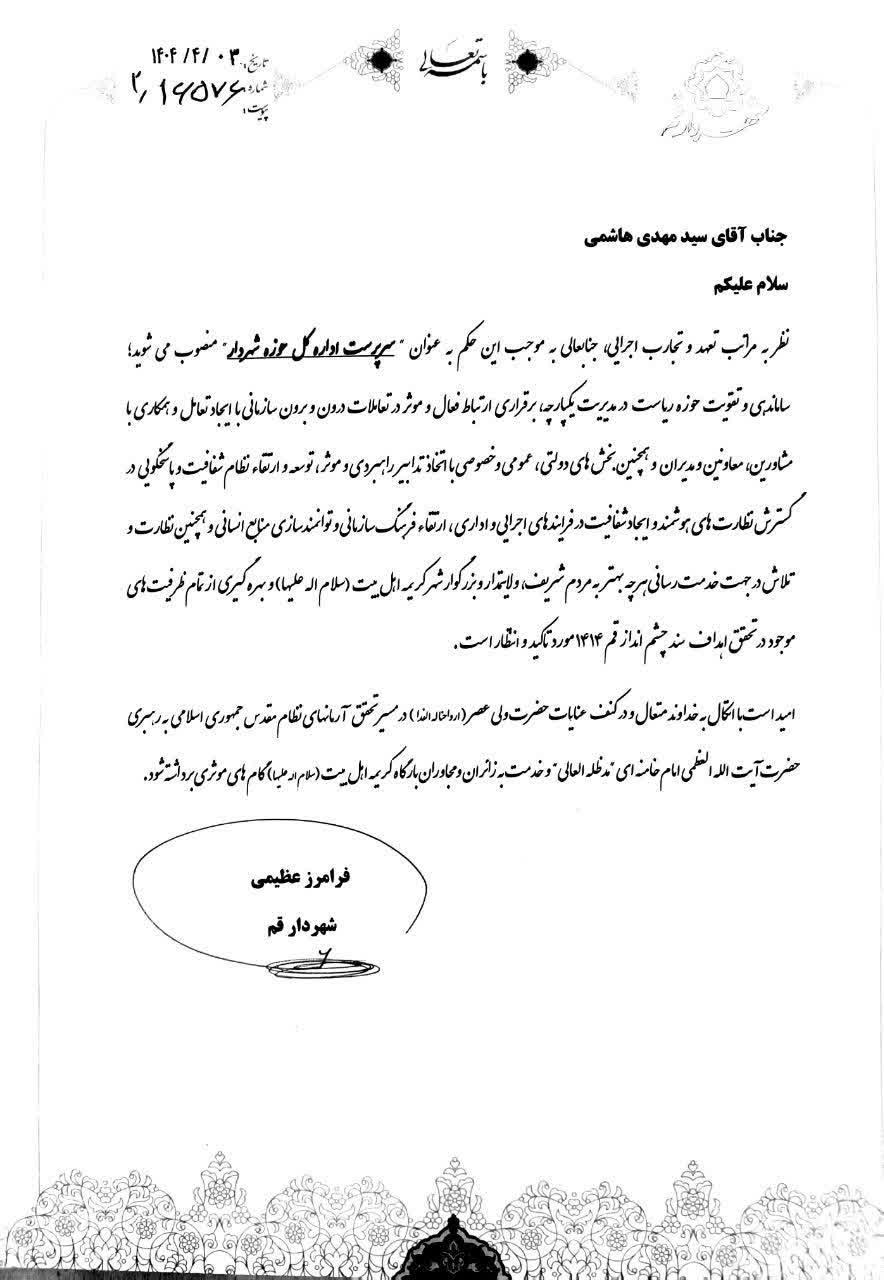 باسمه تعالی
تاریخ: ۱۴۰۴/۴/۰۳
شماره: ۲/۱۶۵۷۶
پیوست:
شهرداری قم
جناب آقای سید مهدی هاشمی
سلام علیکم
نظر به مراتب تعهد و تجارب اجرایی، جنابعالی به موجب این حکم به عنوان "سرپرست اداره کل حوزه شهردار" منصوب می شوید؛
ساماندهی و تقویت حوزه ریاست در مدیریت یکپارچه، برقراری ارتباط فعال و موثر در تعاملات درون و برون سازمانی با ایجاد تعامل و همکاری با
مشاورین، معاونین و مدیران و همچنین بخش های دولتی، عمومی و خصوصی با اتخاذ تدابیر راهبردی و موثر، توسعه و ارتقاء نظام شفافیت و پاسخگویی در
گسترش نظارت های هوشمند و ایجاد شفافیت در فرایندهای اجرایی و اداری، ارتقاء فرهنگ سازمانی و توانمندسازی منابع انسانی و همچنین نظارت و
تلاش در جهت خدمت رسانی هرچه بهتر به مردم شریف، ولایتمدار و بزرگوار شهر کریمه اهل بیت (سلام اله علیها) و بهره گیری از تمام ظرفیت های
موجود در تحقق اهداف سند چشم انداز قم ۱۴۱۴ مورد تاکید و انتظار است.
امید است با اتکال به خداوند متعال و در کنف عنایات حضرت ولی عصر (ارواحناله الفداء) در مسیر تحقق آرمانهای نظام مقدس جمهوری اسلامی به رهبری
حضرت آیت الله العظمی امام خامنه ای "مدظله العالی" و خدمت به زائران و مجاوران بارگاه کریمه اهل بیت (سلام اله علیها) گام های موثری برداشته شود.
فرامرز عظیمی
شهردار قم